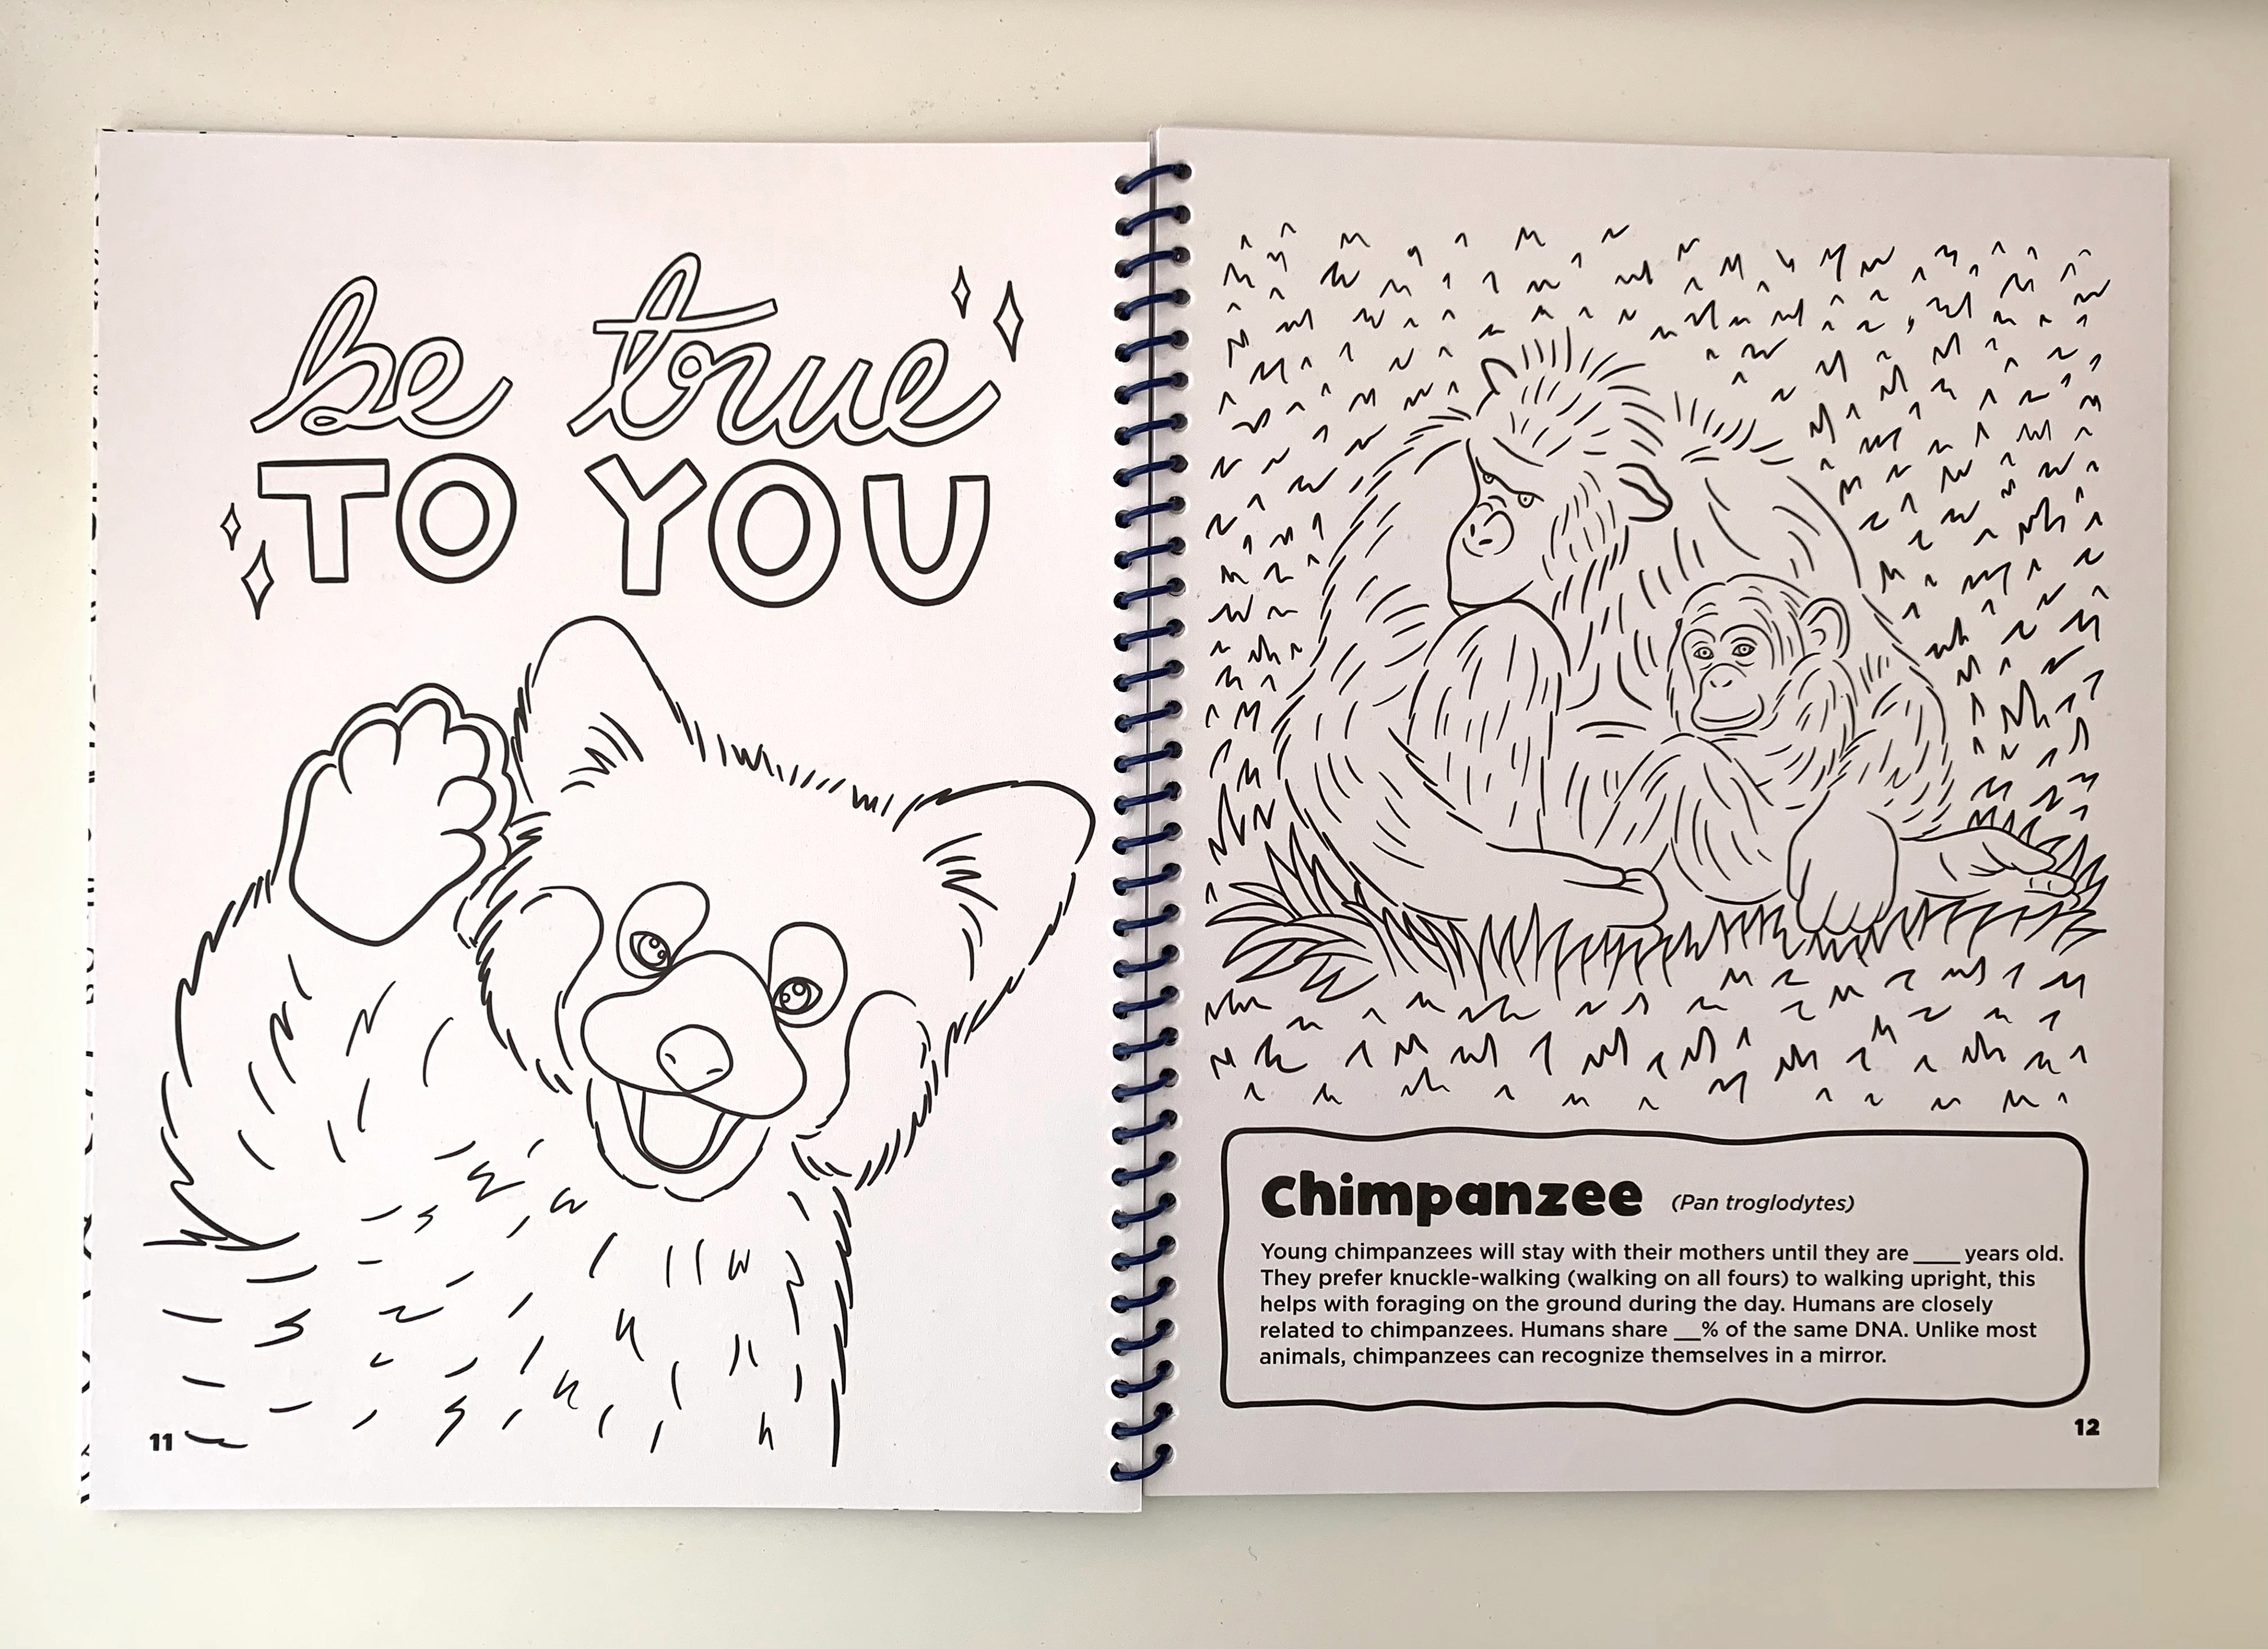 be true
TO YOU
11
Chimpanzee (Pan troglodytes)
Young chimpanzees will stay with their mothers until they are ____ years old.
They prefer knuckle-walking (walking on all fours) to walking upright, this
helps with foraging on the ground during the day. Humans are closely
related to chimpanzees. Humans share __% of the same DNA. Unlike most
animals, chimpanzees can recognize themselves in a mirror.
12